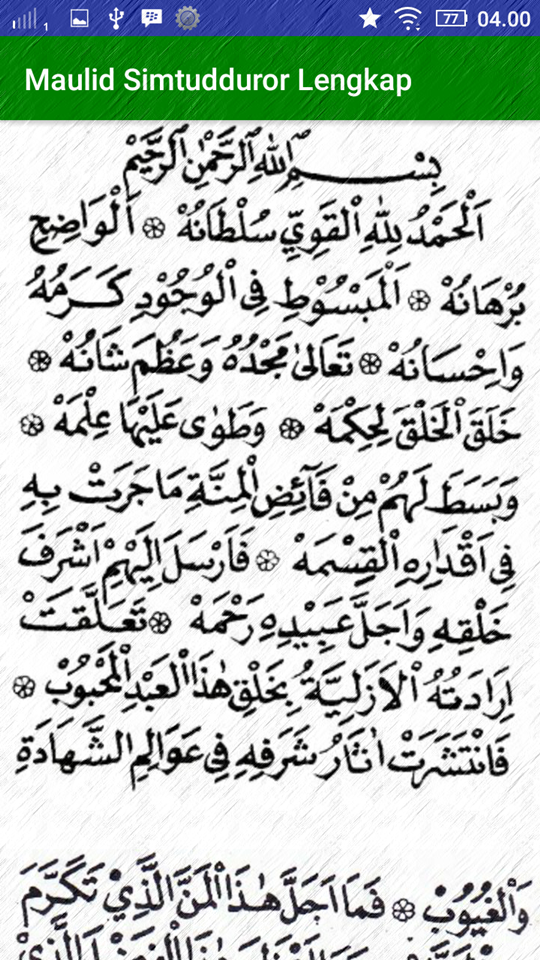 1 77 04.00
Maulid Simtudduror Lengkap
بِسْمِ اللهِ الرَّحْمٰنِ الرَّحِيْمِ
اَلْحَمْدُ لِلّٰهِ الْقَوِيِّ سُلْطَانُهْ ۞ اَلْوَاضِحِ
بُرْهَانُهْ ۞ اَلْمَبْسُوْطِ فِى الْوُجُوْدِ كَرَمُهُ
وَاِحْسَانُهْ ۞ تَعَالىٰ مَجْدُهُ وَعَظُمَ شَانُهْ ۞
خَلَقَ الْخَلْقَ لِحِكْمَهْ ۞ وَطَوٰى عَلَيْهَا عِلْمَهْ ۞
وَبَسَطَ لَهُمْ مِنْ فَآئِضِ الْمِنَّةِ مَا جَرَتْ بِهِ
فِى اَقْدَارِهِ الْقِسْمَهْ ۞ فَاَرْسَلَ اِلَيْهِمْ اَشْرَفَ
خَلْقِهِ وَاَجَلَّ عَبِيْدِهِ رَحْمَهْ ۞ تَعَلَّقَتْ
اِرَادَتُهُ الْاَزَلِيَّةُ بِخَلْقِ هٰذَا الْعَبْدِ الْمَحْبُوْبْ ۞
فَانْتَشَرَتْ اٰثَارُ شَرَفِهِ فِى عَوَالِمِ الشَّهَادَةِ
وَالْغُيُوْبْ ۞ فَمَا اَجَلَّ هٰذَا الْمَنَّ الَّذِيْ تَكَرَّمَ